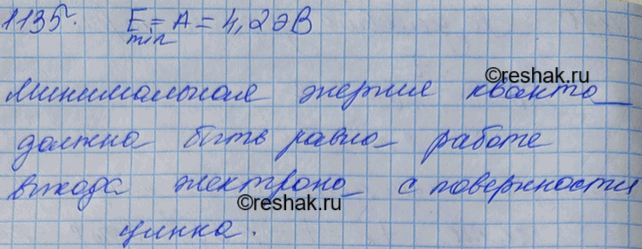 1135. E min = A = 4,2 эВ
©reshak.ru
Минимальная энергия кванта
должна быть равна работе
выхода электрона с поверхности
©reshak.ru
цинка.